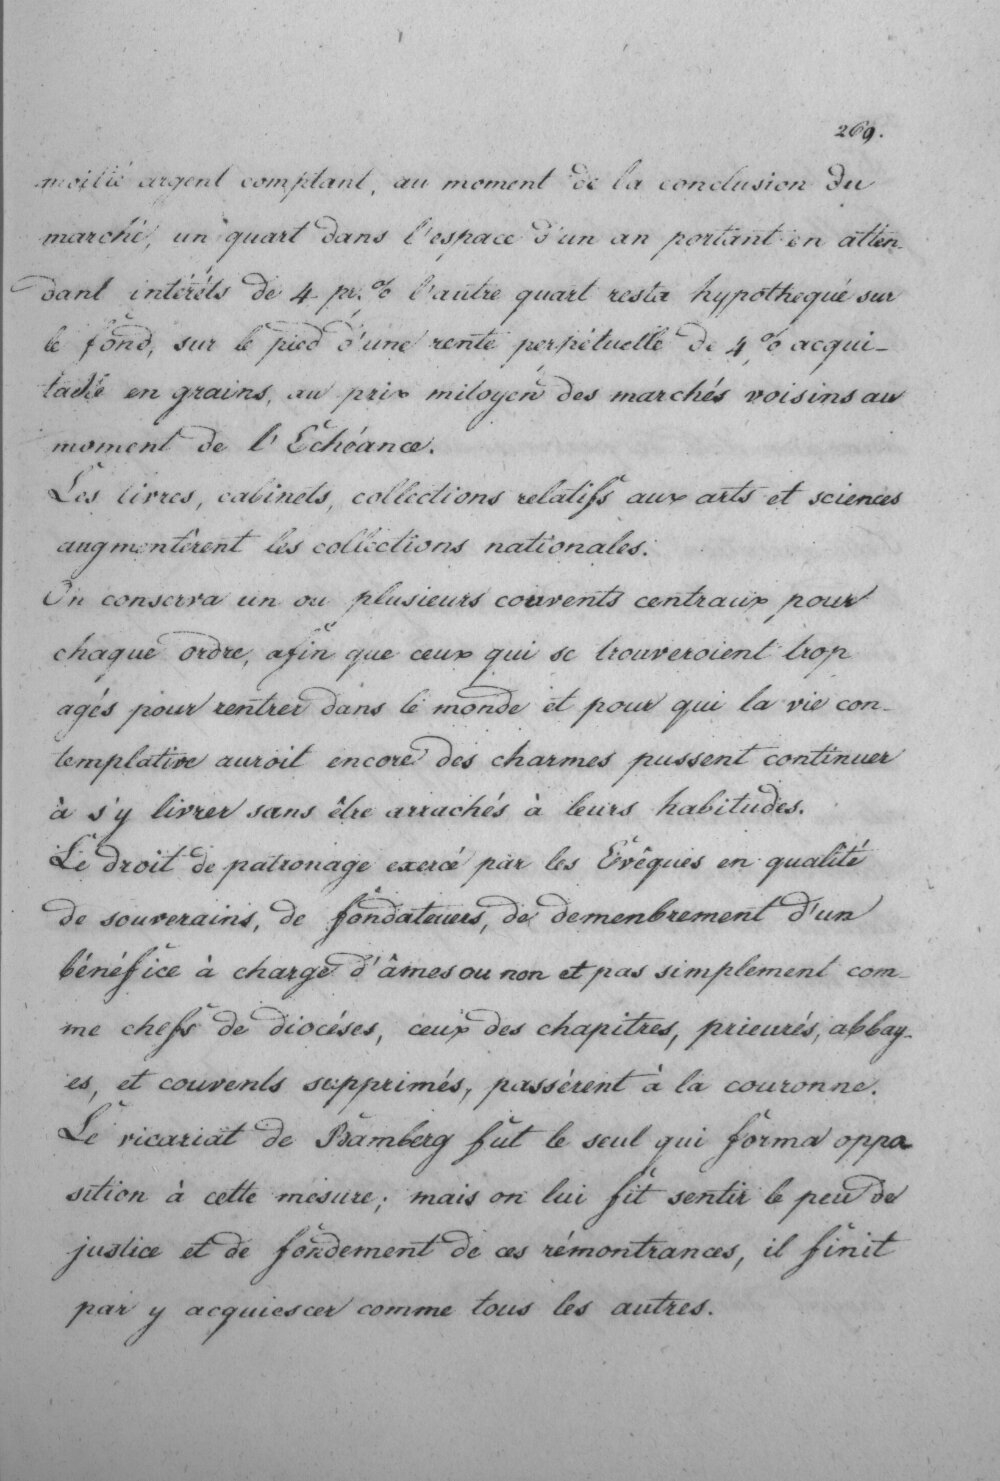 269.
moitié argent comptant, au moment de la conclusion du
marché, un quart dans l'espace d'un an portant en atten-
dant intérêts de 4 pr. % l'autre quart resta hypothequé sur
le fond, sur le pied d'une rente perpétuelle de 4 % acqui-
table en grains, au prix mitoyen des marchés voisins au
moment de l'Echéance.
Les livres, cabinets, collections relatifs aux arts et sciences
augmentèrent les collections nationales.
On conserva un ou plusieurs couvents centraux pour
chaque ordre, afin que ceux qui se trouveroient trop
agés pour rentrer dans le monde et pour qui la vie con-
templative auroit encore des charmes pussent continuer
à s'y livrer sans être arrachés à leurs habitudes.
Le droit de patronage exercé par les Evêques en qualité
de souverains, de fondateuers, de demenbrement d'un
bénéfice à charge d'âmes ou non et pas simplement com-
me chefs de diocéses, ceux des chapitres, prieurés, abbay-
es, et couvents supprimés, passérent à la couronne.
Le vicariat de Bamberg fut le seul qui forma oppo
sition à cette mesure; mais on lui fit sentir le peu de
justice et de fondement de ces rémontrances, il finit
par y acquiescer comme tous les autres.